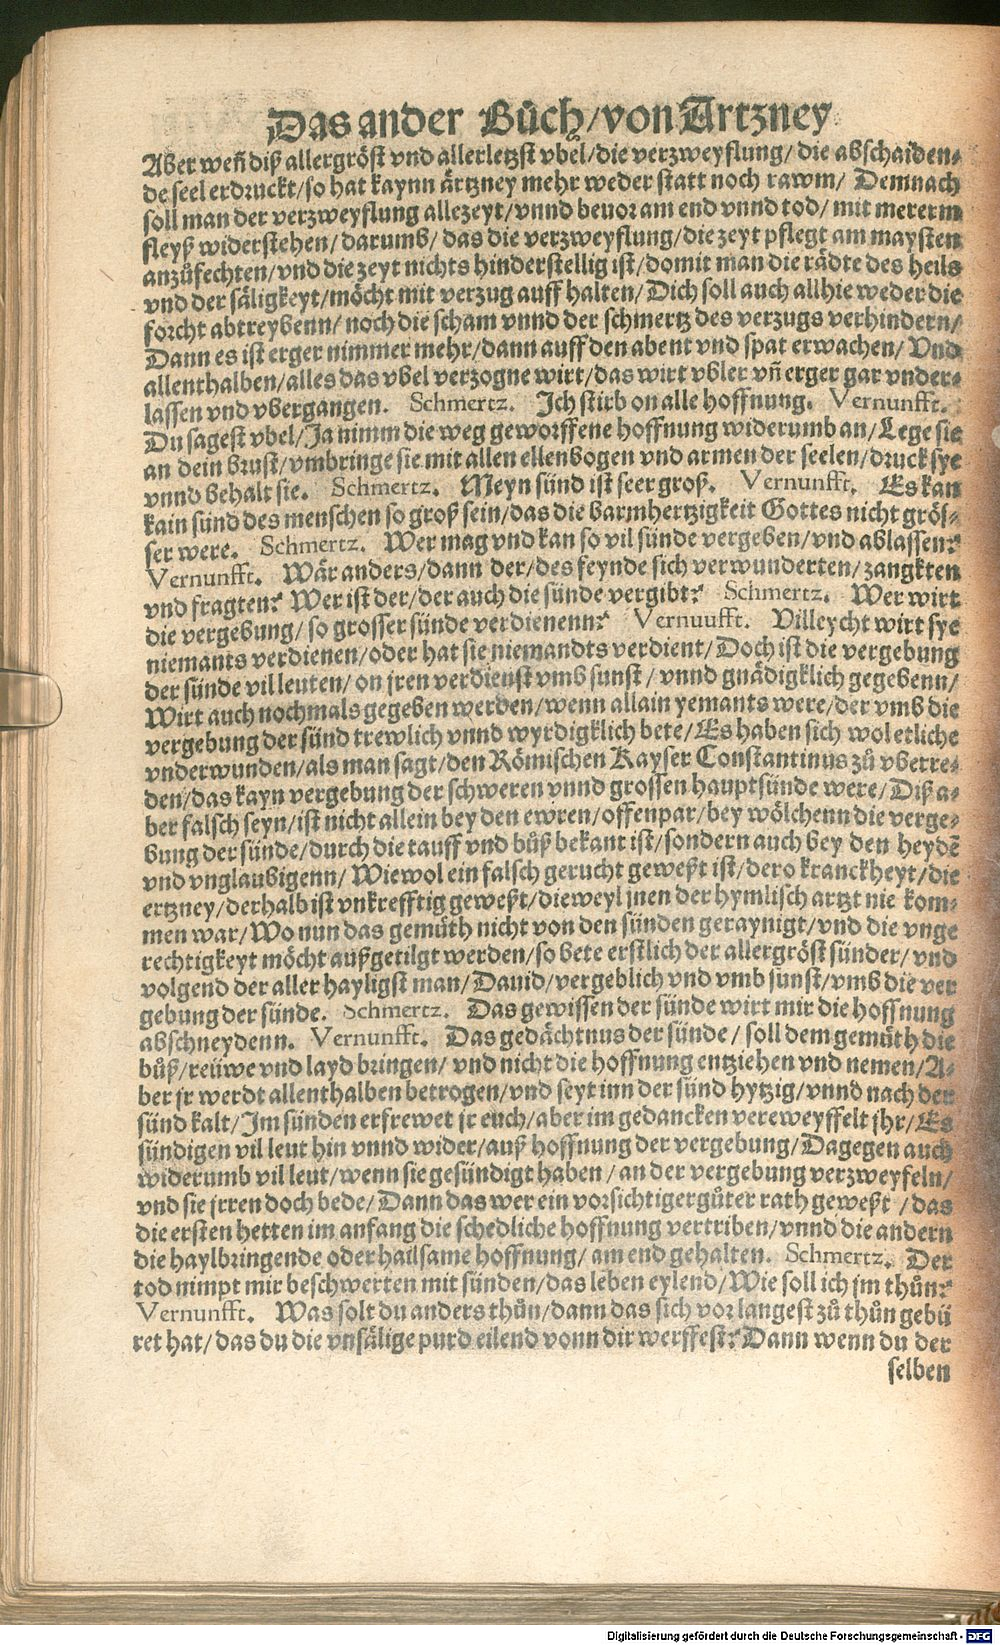 Das ander Bůch/von Artzney
Aber weñ diß allergröst vnd allerletzst vbel/die verzweyflung/ die abschaiden-
de seel erdruckt/so hat kaynn ärtzney mehr weder statt noch rawm/ Demnach
soll man der verzweyflung allezeyt/vnnd beuor am end vnnd tod/ mit mererm
fleyß widerstehen/darumb/ das die verzweyflung/die zeyt pflegt am maysten
anzůfechten/vnd die zeyt nichts hinderstellig ist/domit man die rädte des heils
vnd der säligkeyt/möcht mit verzug auff halten/Dich soll auch allhie weder die
forcht abtreybenn/noch die scham vnnd der schmertz des verzugs verhindern/
Dann es ist erger nimmer mehr/dann auff den abent vnd spat erwachen/ Vnd
allenthalben/alles das vbel verzogne wirt/das wirt vbler vñ erger gar vnder-
lassen vnd vbergangen. Schmertz. Ich stirb on alle hoffnung. Vernunfft.
Du sagest vbel/Ja nimm die weg geworffene hoffnung widerumb an/Lege sie
an dein brust/vmbringe sie mit allen ellenbogen vnd armen der seelen/druck sye
vnnd behalt sie. Schmertz. Meyn sünd ist seer groß. Vernunfft. Es kan
kain sünd des menschen so groß sein/das die barmhertzigkeit Gottes nicht grös-
ser were. Schmertz. Wer mag vnd kan so vil sünde vergeben/vnd ablassen?
Vernunfft. Wär anders/dann der/des feynde sich verwunderten/zangkten
vnd fragten? Wer ist der/der auch die sünde vergibt? Schmertz. Wer wirt
die vergebung/so grosser sünde verdienenn? Vernuufft. Villeycht wirt sye
niemants verdienen/oder hat sie niemandts verdient/Doch ist die vergebung
der sünde vil leuten/on jren verdienst vmb sunst/vnnd gnädigklich gegebenn/
Wirt auch nochmals gegeben werden/wenn allain yemants were/der vmb die
vergebung der sünd trewlich vnnd wyrdigklich bete/Es haben sich wol etliche
vnderwunden/als man sagt/den Römischen Kayser Constantinus zů vbetre-
den/das kayn vergebung der schweren vnnd grossen hauptsünde were/Diß a-
ber falsch seyn/ist nicht allein bey den ewren/offenpar/bey wölchenn die verge-
bung der sünde/durch die tauff vnd bůß bekant ist/sondern auch bey den heydẽ
vnd vnglaubigenn/Wiewol ein falsch gerucht geweßt ist/dero kranckheyt/die
ertzney/derhalb ist vnkrefftig geweßt/dieweyl jnen der hymlisch artzt nie kom-
men war/Wo nun das gemüth nicht von den sünden geraynigt/vnd die vnge
rechtigkeyt möcht außgetilgt werden/so bete erstlich der allergröst sünder/vnd
volgend der aller hayligst man/Dauid/vergeblich vnd vmb sunst/vmb die ver
gebung der sünde. Schmertz. Das gewissen der sünde wirt mir die hoffnung
abschneydenn. Vernunfft. Das gedächtnus der sünde/soll dem gemüth die
bůß/reüwe vnd layd bringen/vnd nicht die hoffnung entziehen vnd nemen/A-
ber jr werdt allenthalben betrogen/vnd seyt inn der sünd hytzig/vnnd nach der
sünd kalt/Im sünden erfrewet jr euch/aber im gedancken vereweyffelt jhr/Es
sündigen vil leut hin vnnd wider/auß hoffnung der vergebung/Dagegen auch
widerumb vil leut/wenn sie gesündigt haben/an der vergebung verzweyfeln/
vnd sie jrren doch bede/Dann das wer ein vorsichtiger gůter rath geweßt/das
die ersten hetten im anfang die schedliche hoffnung vertriben/vnnd die andern
die haylbringende oder hailsame hoffnung/am end gehalten. Schmertz. Der
tod nimpt mir beschwerten mit sünden/das leben eylend/Wie soll ich jm thůn?
Vernunfft. Was solt du anders thůn/dann das sich vor langest zů thůn gebü
ret hat/das du die vnsälige purd eilend vonn dir werffest? Dann wenn du der
selben
Digitalisierung gefördert durch die Deutsche Forschungsgemeinschaft - DFG